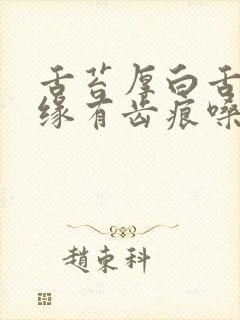 舌苔厚白舌
缘有齿痕嗓
趙束科